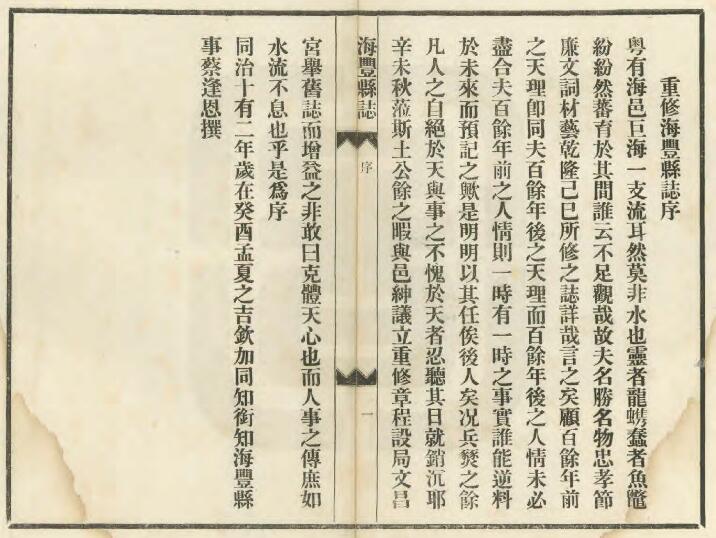 重修海豐縣誌序
粤有海邑巨海一支流耳然莫非水也靈者龍螭蠢者魚鼈
紛紛然蕃育於其間誰云不足觀哉故夫名勝名物忠孝節
廉文詞材藝乾隆己巳所修之誌詳哉言之矣顧百餘年前
之天理卽同夫百餘年後之天理而百餘年後之人情未必
盡合夫百餘年前之人情則一時有一時之事實誰能逆料
於未來而預記之歟是明明以其任俟後人矣况兵燹之餘
凡人之自絕於天與事之不愧於天者忍聽其日就銷沉耶
辛未秋蒞斯土公餘之暇與邑紳議立重修章程設局文昌
海豐縣誌
序
一
宮舉舊誌而增益之非敢曰克體天心也而人事之傳庶如
水流不息也乎是爲序
同治十有二年歲在癸酉孟夏之吉欽加同知銜知海豐縣
事蔡逢恩撰